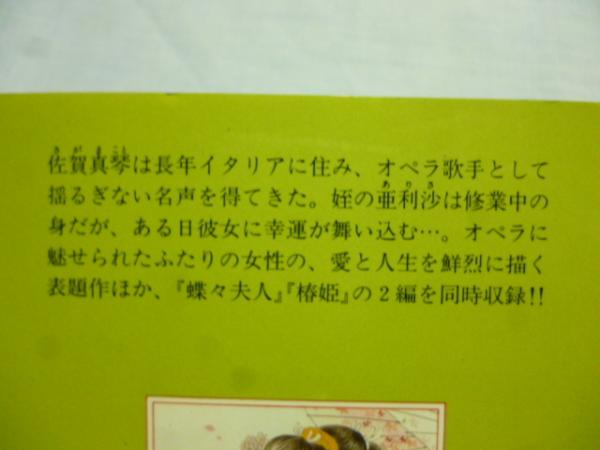 佐賀真琴は長年イタリアに住み、オペラ歌手として
揺るぎない名声を得てきた。姪の亜利沙は修業中の
身だが、ある日彼女に幸運が舞い込む…。オペラに
魅せられたふたりの女性の、愛と人生を鮮烈に描く
表題作ほか、『蝶々夫人』『椿姫』の2編を同時収録!!